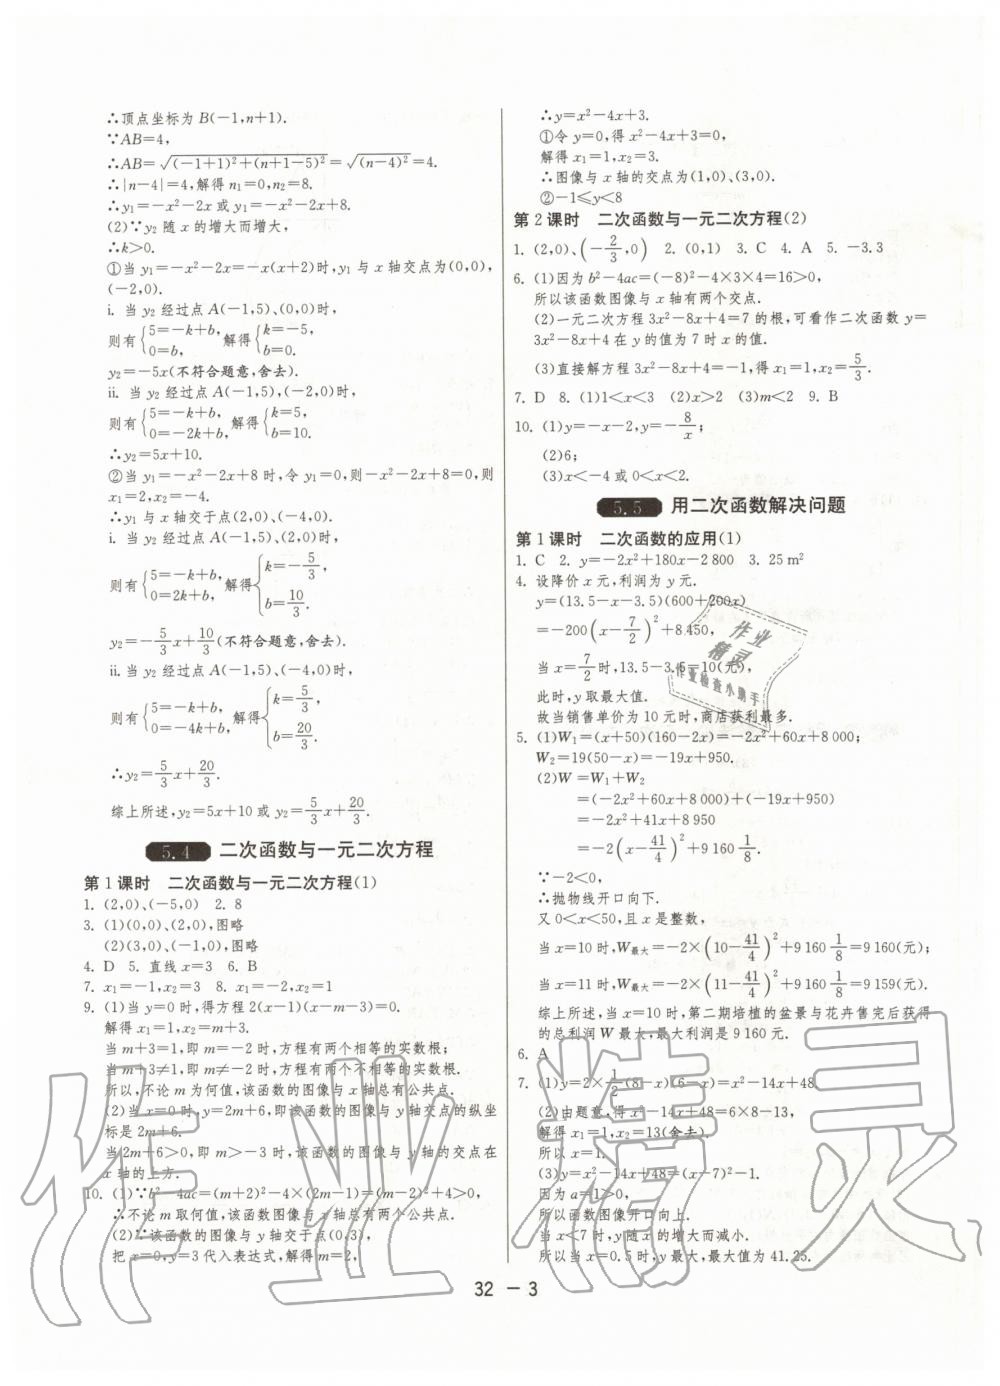 ∴顶点坐标为 B(−1,n+1).
∵AB=4,
∴AB=√((−1+1)²+(n+1−5)²)=√((n−4)²)=4.
∴|n−4|=4,解得 n₁=0,n₂=8.
∴y₁=−x²−2x 或 y₁=−x²−2x+8.
(2)∵y₂ 随 x 的增大而增大,
∴k>0.
①当 y₁=−x²−2x=−x(x+2)时,y₁ 与 x 轴交点为(0,0),
(−2,0).
i. 当 y₂ 经过点 A(−1,5)、(0,0)时,
则有{5=−k+b, 0=b, 解得{k=−5, b=0.
y₂=−5x(不符合题意,舍去).
ii. 当 y₂ 经过点 A(−1,5)、(−2,0)时,
则有{5=−k+b, 0=−2k+b, 解得{k=5, b=10.
∴y₂=5x+10.
②当 y₁=−x²−2x+8 时,令 y₁=0,则−x²−2x+8=0,则
x₁=2,x₂=−4.
∴y₁ 与 x 轴交于点(2,0)、(−4,0).
i. 当 y₂ 经过点 A(−1,5)、(2,0)时,
则有{5=−k+b, 0=2k+b, 解得{k=−5/3, b=10/3.
y₂=−5/3x+10/3(不符合题意,舍去).
ii. 当 y₂ 经过点 A(−1,5)、(−4,0)时,
则有{5=−k+b, 0=−4k+b, 解得{k=5/3, b=20/3.
∴y₂=5/3x+20/3.
综上所述,y₂=5x+10 或 y₂=5/3x+20/3.
5.4 二次函数与一元二次方程
第 1 课时 二次函数与一元二次方程(1)
1. (2,0)、(−5,0) 2. 8
3. (1)(0,0)、(2,0),图略
(2)(3,0)、(−1,0),图略
4. D 5. 直线 x=3 6. B
7. x₁=−1,x₂=3 8. x₁=−2,x₂=1
9. (1)当 y=0 时,得方程 2(x−1)(x−m−3)=0.
解得 x₁=1,x₂=m+3.
当 m+3=1,即 m=−2 时,方程有两个相等的实数根;
当 m+3≠1,即 m≠−2 时,方程有两个不相等的实数根.
所以,不论 m 为何值,该函数的图像与 x 轴总有公共点.
(2)当 x=0 时,y=2m+6,即该函数的图像与 y 轴交点的纵坐
标是 2m+6.
当 2m+6>0,即 m>−3 时,该函数的图像与 y 轴的交点在
x 轴的上方.
10. (1)∵b²−4ac=(m+2)²−4×(2m−1)=(m−2)²+4>0,
∴不论 m 取何值,该函数图像与 x 轴总有两个公共点.
(2)∵该函数的图像与 y 轴交于点(0,3),
把 x=0,y=3 代入表达式,解得 m=2,
∴y=x²−4x+3.
①令 y=0,得 x²−4x+3=0,
解得 x₁=1,x₂=3.
∴图像与 x 轴的交点为(1,0)、(3,0).
②−1≤y<8
第 2 课时 二次函数与一元二次方程(2)
1. (2,0)、(−2/3,0) 2. (0,1) 3. C 4. A 5. −3.3
6. (1)因为 b²−4ac=(−8)²−4×3×4=16>0,
所以该函数图像与 x 轴有两个交点.
(2)一元二次方程 3x²−8x+4=7 的根,可看作二次函数 y=
3x²−8x+4 在 y 的值为 7 时 x 的值.
(3)直接解方程 3x²−8x+4=−1,得 x₁=1,x₂=5/3.
7. D 8. (1)1<x<3 (2)x>2 (3)m<2 9. B
10. (1)y=−x−2,y=−8/x;
(2)6;
(3)x<−4 或 0<x<2.
5.5 用二次函数解决问题
第 1 课时 二次函数的应用(1)
1. C 2. y=−2x²+180x−2 800 3. 25 m²
4. 设降价 x 元,利润为 y 元.
y=(13.5−x−3.5)(600+200x)
=−200(x−7/2)²+8 450,
当 x=7/2时,13.5−3.5=10(元),
此时,y 取最大值.
故当销售单价为 10 元时,商店获利最多.
5. (1)W₁=(x+50)(160−2x)=−2x²+60x+8 000;
W₂=19(50−x)=−19x+950.
(2)W=W₁+W₂
=(−2x²+60x+8 000)+(−19x+950)
=−2x²+41x+8 950
=−2(x−41/4)²+9 160 1/8.
∵−2<0,
∴抛物线开口向下.
又 0<x<50,且 x 是整数,
当 x=10 时,W最大=−2×(10−41/4)²+9 160 1/8=9 160(元);
当 x=11 时,W最大=−2×(11−41/4)²+9 160 1/8=9 159(元).
综上所述,当 x=10 时,第二期培植的盆景与花卉售完后获得
的总利润 W 最大,最大利润是 9 160 元.
6. A
7. (1)y=2×1/2(8−x)(6−x)=x²−14x+48.
(2)由题意,得 x²−14x+48=6×8−13,
解得 x₁=1,x₂=13(舍去).
所以 x=1.
(3)y=x²−14x+48=(x−7)²−1.
因为 a=1>0,
所以函数图像开口向上.
当 x<7 时,y 随 x 的增大而减小.
所以当 x=0.5 时,y 最大,最大值为 41.25.
32 − 3
作业
精灵
作业检查小助手
作业精灵